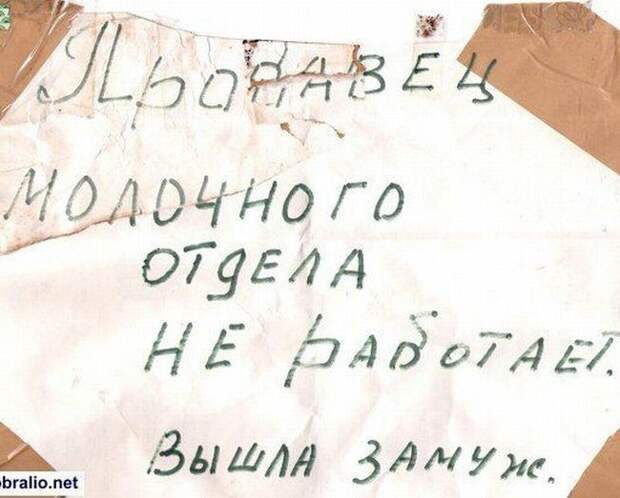 Продавец
молочного
отдела
не работает.
Вышла замуж.
obralio.net